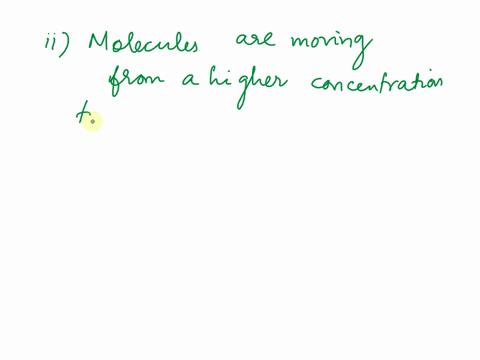 ii) Molecules are moving
from a higher concentration
t